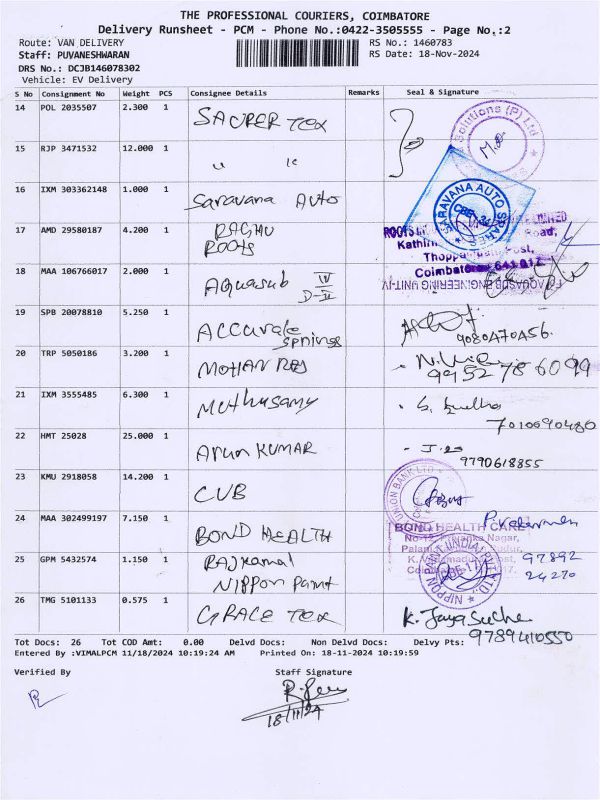 THE PROFESSIONAL COURIERS, COIMBATORE
Delivery Runsheet - PCM - Phone No.:0422-3505555 - Page No.:2
Route: VAN DELIVERY RS No.: 1460783
Staff: PUVANESHWARAN RS Date: 18-Nov-2024
DRS No.: DCJB146078302
Vehicle: EV Delivery
S No Consignment No Weight PCS Consignee Details Remarks Seal & Signature
14 POL 2035507 2.300 1 SACRER TEX
Solutions (P) Ltd
15 RJP 3471532 12.000 1 " "
16 IXM 303362148 1.000 1 Saravana Auto
SARAVANA AUTO SPARES
17 AMD 29580187 4.200 1 RAGHU
ROOTS
ROOTS LIMITED
Road,
Thoppampatti Post,
Coimbatore 641 017
18 MAA 106766017 2.000 1 Aquasub IV
D-II
AQUASUB ENGINEERING UNIT-IV
19 SPB 20078810 5.250 1 Accurate
springs
9080470456.
20 TRP 5050186 3.200 1 MOHAN RAJ
99527 86099
21 IXM 3555485 6.300 1 Muthusamy
7010690480
22 HMT 25028 25.000 1 Arun KUMAR
9790618855
23 KMU 2918058 14.200 1 CUB
UNION BANK LTD
24 MAA 302499197 7.150 1 BOND HEALTH
BOND HEALTH CARE
25 GPM 5432574 1.150 1 RAJKamal
Nippon paint
NIPPON PAINT (INDIA) PVT. LTD.
97892
24270
26 TMG 5101133 0.575 1 GRACE TEX
K. Jaya Sudha
9789410550
Tot Docs: 26 Tot COD Amt: 0.00 Delvd Docs: Non Delvd Docs: Delvy Pts:
Entered By :VIMALPCM 11/18/2024 10:19:24 AM Printed On: 18-11-2024 10:19:59
Verified By Staff Signature
18/11/24